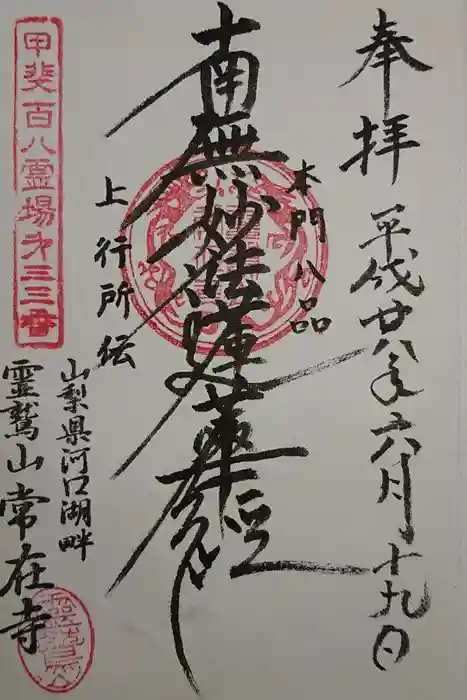 奉拝
平成廿八年六月十九日
本門八品
南無妙法蓮華経
上行所伝
山梨県河口湖畔
霊鷲山常在寺
甲斐百八霊場第三三番